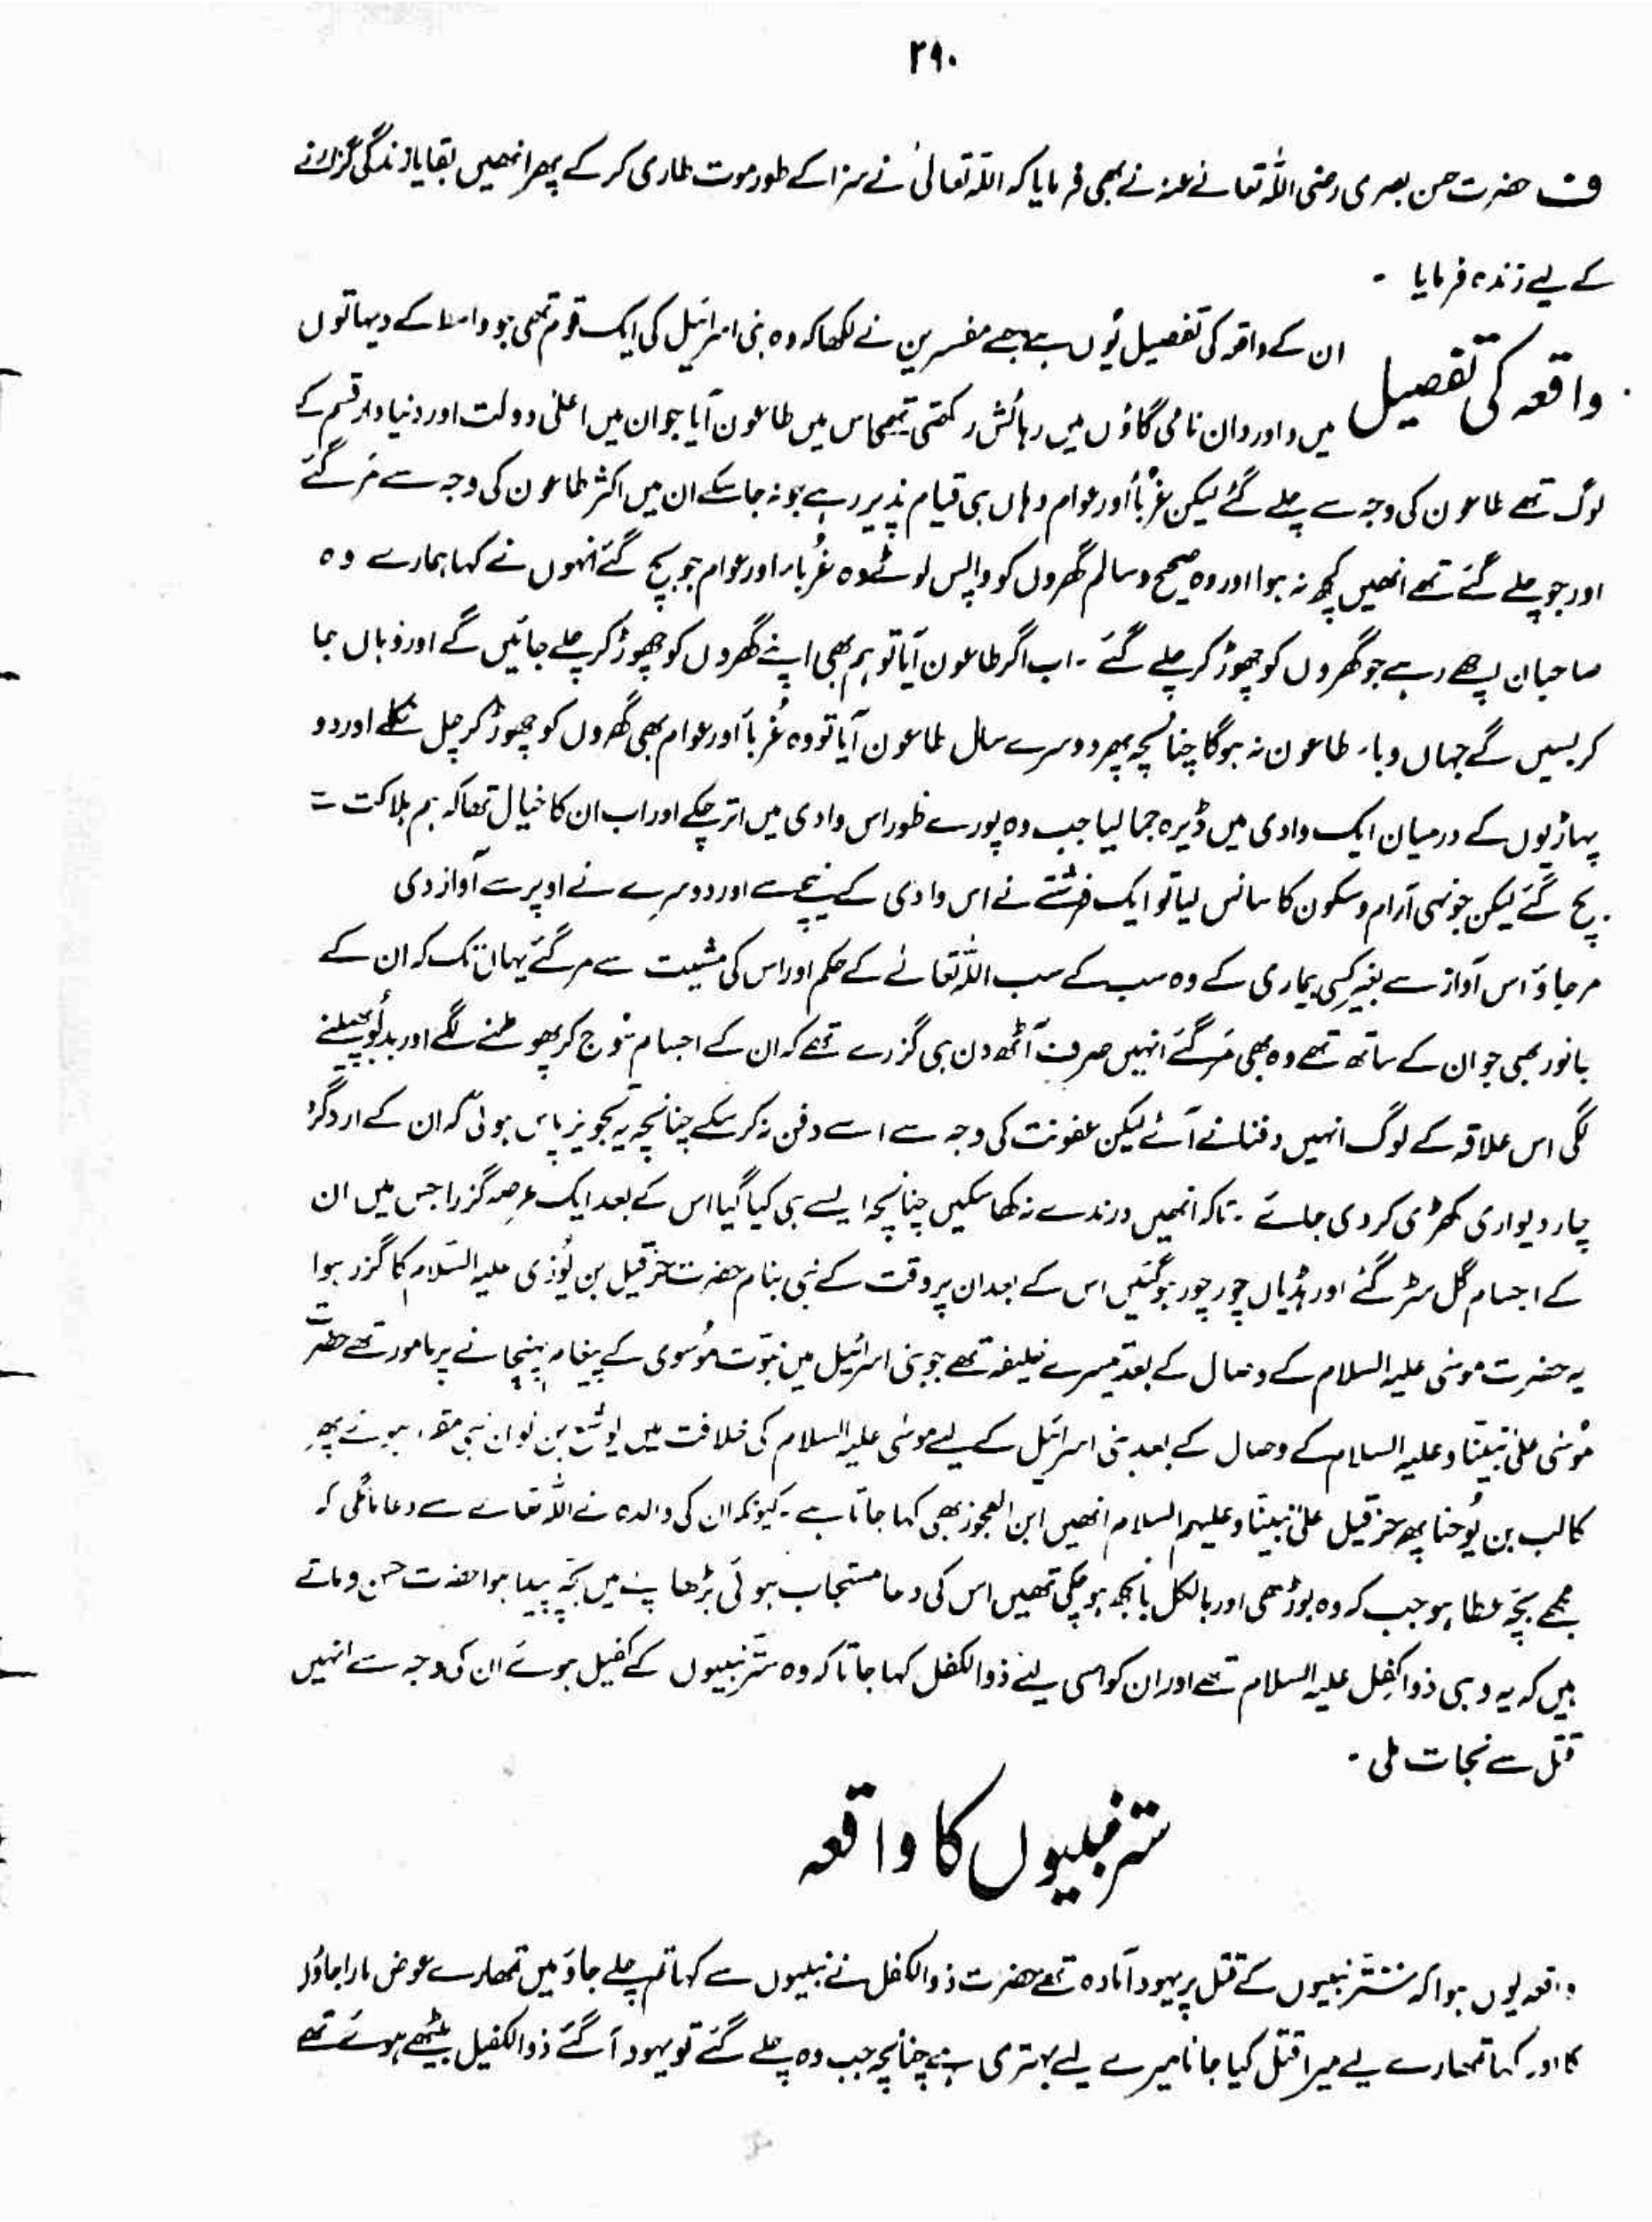 ۲۹۰
ف حضرت حسن بصری رضی اللہ تعالےٰ عنہ نے بھی فرمایا کہ اللہ تعالیٰ نے سزا کے طور موت طاری کر کے پھر انھیں بقایا زندگی گزارنے
کے لیے زندہ فرمایا ۔
واقعہ کی تفصیل
ان کے واقعہ کی تفصیل یُوں ہے جسے مفسرین نے لکھا کہ وہ بنی اسرائیل کی ایک قوم تھی جو واسطا کے دیہاتوں
میں داوردان نامی گاؤں میں رہائش رکھتی تھی اس میں طاعون آیا جو ان میں اعلیٰ دولت اور دنیا دار قسم کے
لوگ تھے طاعون کی وجہ سے چلے گئے لیکن غُربأ اور عوام وہاں ہی قیام پذیر رہے جو نہ جا سکے ان میں اکثر طاعون کی وجہ سے مَر گئے
اور جو چلے گئے تھے انھیں کچھ نہ ہوا اور وہ صحیح و سالم گھروں کو واپس لوٹے وہ غُرباء اور عوام جو بچ گئے انہوں نے کہا ہمارے وہ
صاحبان اچھے رہے جو گھروں کو چھوڑ کر چلے گئے ۔ اب اگر طاعون آیا تو ہم بھی اپنے گھروں کو چھوڑ کر چلے جائیں گے اور وہاں جا
کر بسیں گے جہاں وباء طاعون نہ ہو گا چنانچہ پھر دوسرے سال طاعون آیا تو وہ غُربأ اور عوام بھی گھروں کو چھوڑ کر چل نکلے اور دو
پہاڑیوں کے درمیان ایک وادی میں ڈیرہ جما لیا جب وہ پورے طور اس وادی میں اتر چکے اور اب ان کا خیال تھا کہ ہم ہلاکت سے
بچ گئے لیکن جونہی آرام و سکون کا سانس لیا تو ایک فرشتے نے اس وادی کے نیچے سے اور دوسرے نے اوپر سے آواز دی
مر جاؤ اس آواز سے بغیر کسی بیماری کے وہ سب کے سب اللہ تعالےٰ کے حکم اور اس کی مشیت سے مر گئے یہاں تک کہ ان کے
جانور بھی جو ان کے ساتھ تھے وہ بھی مَر گئے انہیں صرف آٹھ دن ہی گزرے تھے کہ ان کے اجسام سُوج کر پھوٹنے لگے اور بدبُو پھیلنے
لگی اس علاقہ کے لوگ انہیں دفنانے آئے لیکن عفونت کی وجہ سے اسے دفن نہ کر سکے چنانچہ یہ تجویز پاس ہوئی کہ ان کے ارد گرد
چار دیواری کھڑی کر دی جائے ۔ تاکہ انھیں درندے نہ کھا سکیں چنانچہ ایسے ہی کیا گیا اس کے بعد ایک عرصہ گزرا جس میں ان
کے اجسام گل سڑ گئے اور ہڈیاں چور چور ہو گئیں اس کے بعد ان پر وقت کے نبی بنام حضرت حزقیل بن یُوذی علیہ السّلام کا گزر ہوا
یہ حضرت موسٰی علیہ السلام کے وصال کے بعد تیسرے خلیفہ تھے جو بنی اسرائیل میں نبوّت مُوسوی کے پیغام پہنچانے پر مامور تھے حضرت
مُوسٰی علیٰ نبینا و علیہ السلام کے وصال کے بعد بنی اسرائیل کے لیے موسٰی علیہ السلام کی خلافت میں یوشع بن نون نبی ہوئے پھر
کالب بن یُوحنا پھر حزقیل علیٰ نبینا و علیہم السلام انھیں ابن العجوز بھی کہا جاتا ہے ۔ کیونکہ ان کی والدہ نے اللہ تعالےٰ سے دعا مانگی کہ
مجھے بچّہ عطا ہو جب کہ وہ بوڑھی اور بالکل بانجھ ہو چکی تھیں اس کی دعا مستجاب ہوئی بڑھاپے میں بچّہ پیدا ہوا حضرت حسن فرماتے
ہیں کہ یہ وہی ذوالکفل علیہ السلام تھے اور ان کو اسی لیے ذوالکفل کہا جاتا کہ وہ ستّر نبیوں کے کفیل ہوئے ان کی وجہ سے انہیں
قتل سے نجات ملی ۔
ستر نبیوں کا واقعہ
واقعہ یوں ہوا کہ ستّر نبیوں کے قتل پر یہود آمادہ تھے حضرت ذوالکفل نے نبیوں سے کہا تم چلے جاؤ میں تمھارے عوض مارا جاؤں
گا اور کہا تمھارے لیے میرا قتل کیا جانا میرے لیے بہتری ہے چنانچہ جب وہ چلے گئے تو یہود آ گئے ذوالکفیل بیٹھے ہوئے تھے